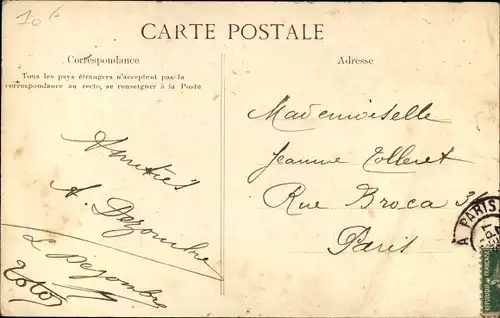 CARTE POSTALE
Correspondance
Tous les pays étrangers n'acceptent pas la
correspondance au recto, se renseigner à la Poste
Adresse
Amitiés
A. Dezombre
L Dezombre
Toto
Mademoiselle
Jeanne Tolleret
Rue Broca 31
Paris
A PARIS